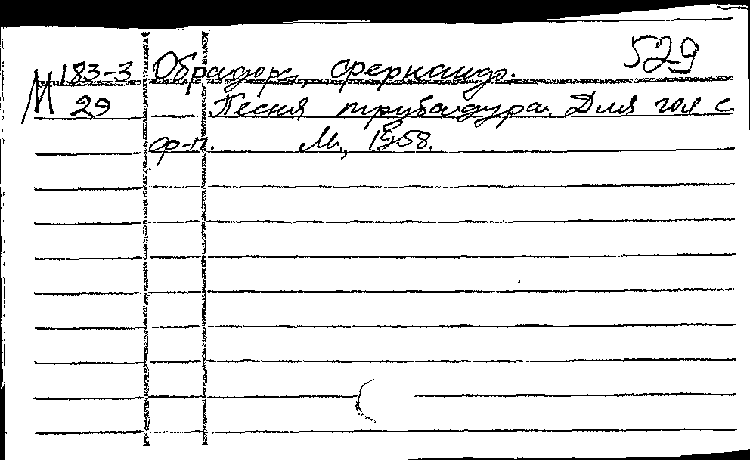 529
М 183-3 Обрадорс, Фернандо.
29 Песня трубадура. Для гол с
ф-п. М., 1958.